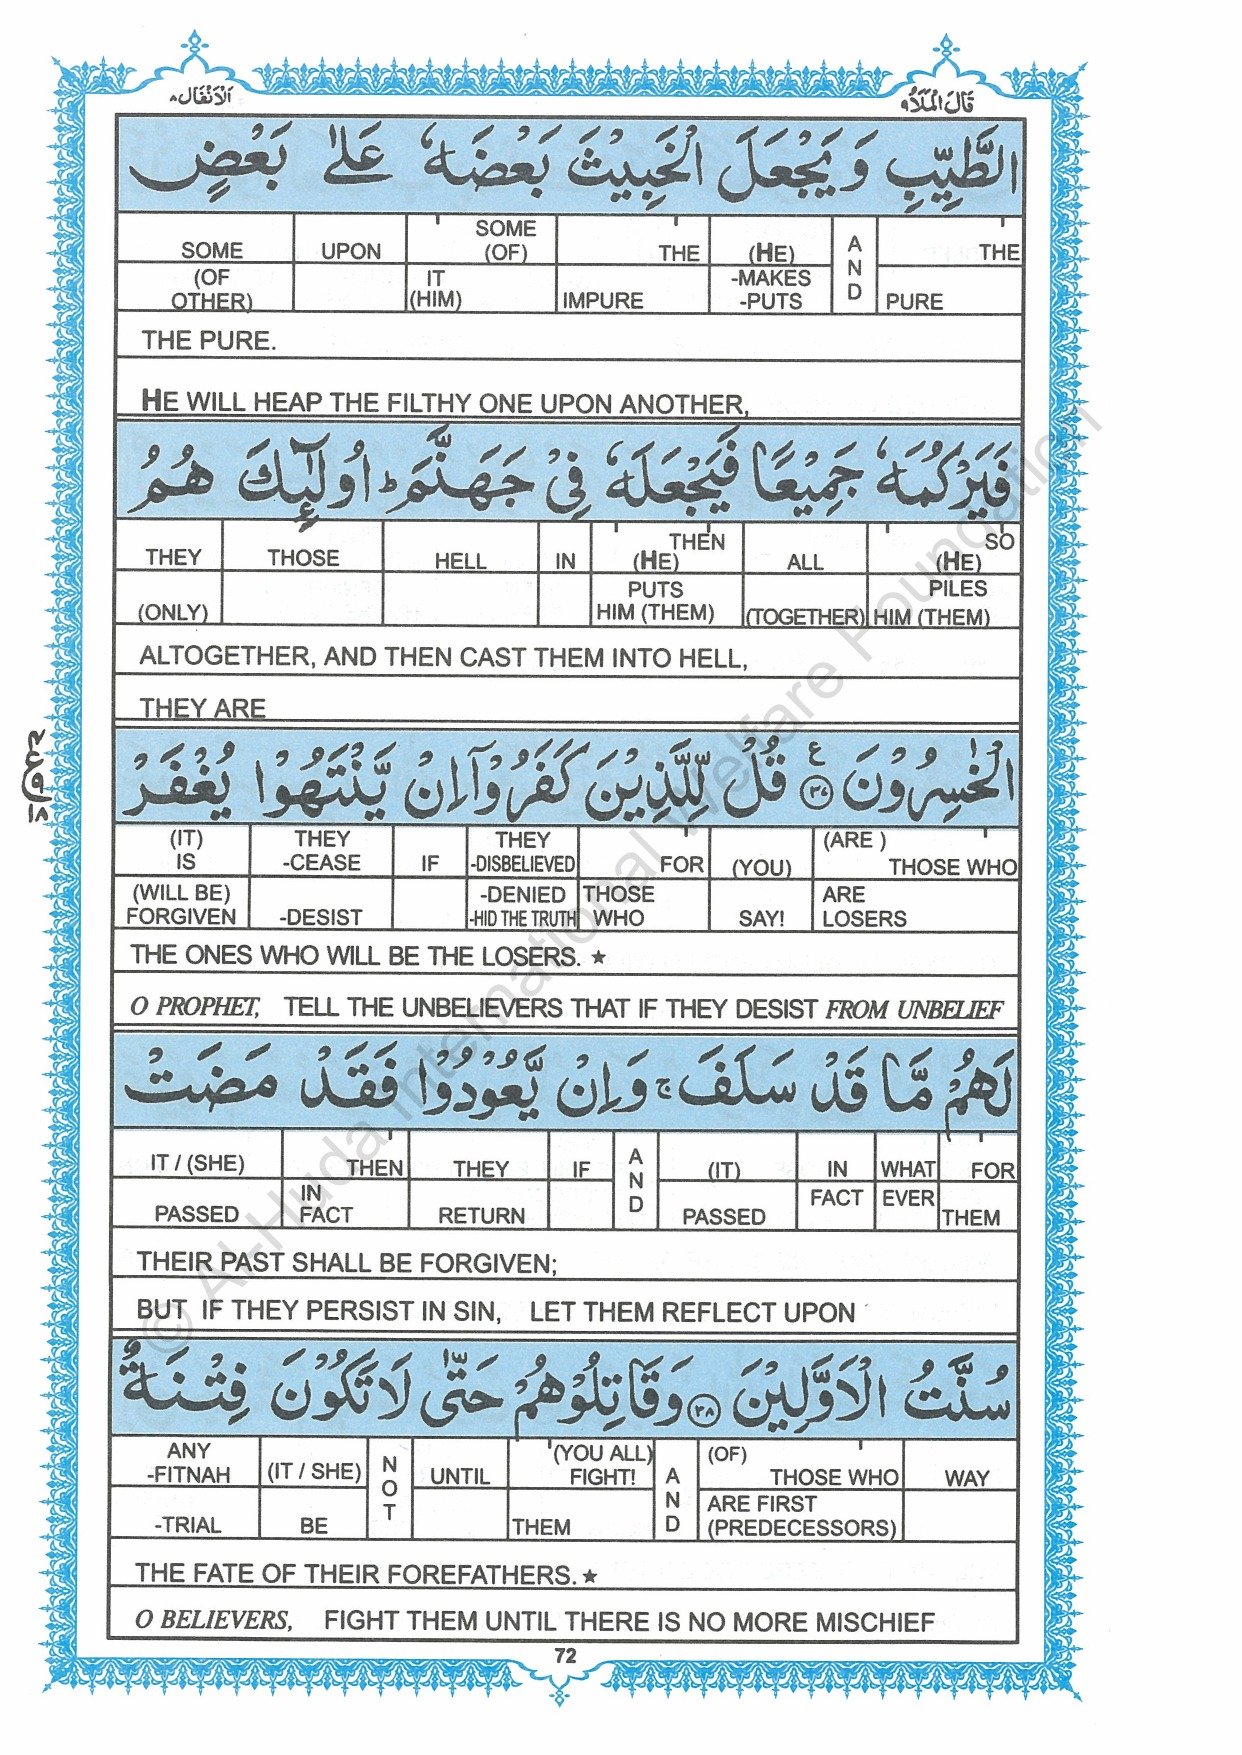 الانفال ٨
قال الملا ٩
الطَّيِّبِ وَيَجْعَلَ الْخَبِيْثَ بَعْضَهٗ عَلٰى بَعْضٍ
SOME UPON SOME (OF) THE (HE) AND THE
(OF OTHER) IT (HIM) IMPURE -MAKES -PUTS PURE
THE PURE.
HE WILL HEAP THE FILTHY ONE UPON ANOTHER,
فَيَرْكُمَهٗ جَمِيْعًا فَيَجْعَلَهٗ فِيْ جَهَنَّمَ ؕ اُولٰٓئِكَ هُمُ
THEY THOSE HELL IN THEN (HE) ALL SO (HE)
(ONLY) PUTS HIM (THEM) (TOGETHER) PILES HIM (THEM)
ALTOGETHER, AND THEN CAST THEM INTO HELL,
THEY ARE
الْخٰسِرُوْنَ ۧ ٣٧ قُلْ لِّلَّذِيْنَ كَفَرُوْٓا اِنْ يَّنْتَهُوْا يُغْفَرْ
(IT) IS THEY -CEASE IF THEY -DISBELIEVED FOR (YOU) (ARE ) THOSE WHO
(WILL BE) FORGIVEN -DESIST -DENIED -HID THE TRUTH THOSE WHO SAY! ARE LOSERS
THE ONES WHO WILL BE THE LOSERS. ★
O PROPHET, TELL THE UNBELIEVERS THAT IF THEY DESIST FROM UNBELIEF
لَهُمْ مَّا قَدْ سَلَفَ ۚ وَاِنْ يَّعُوْدُوْا فَقَدْ مَضَتْ
IT / (SHE) THEN THEY IF AND (IT) IN WHAT FOR
PASSED IN FACT RETURN PASSED FACT EVER THEM
THEIR PAST SHALL BE FORGIVEN;
BUT IF THEY PERSIST IN SIN, LET THEM REFLECT UPON
سُنَّتُ الْاَوَّلِيْنَ ٣٨ وَقَاتِلُوْهُمْ حَتّٰى لَا تَكُوْنَ فِتْنَةٌ
ANY -FITNAH (IT / SHE) NOT UNTIL (YOU ALL) FIGHT! AND (OF) THOSE WHO WAY
-TRIAL BE THEM ARE FIRST (PREDECESSORS)
THE FATE OF THEIR FOREFATHERS. ★
O BELIEVERS, FIGHT THEM UNTIL THERE IS NO MORE MISCHIEF
72
© Al-Huda International Welfare Foundation